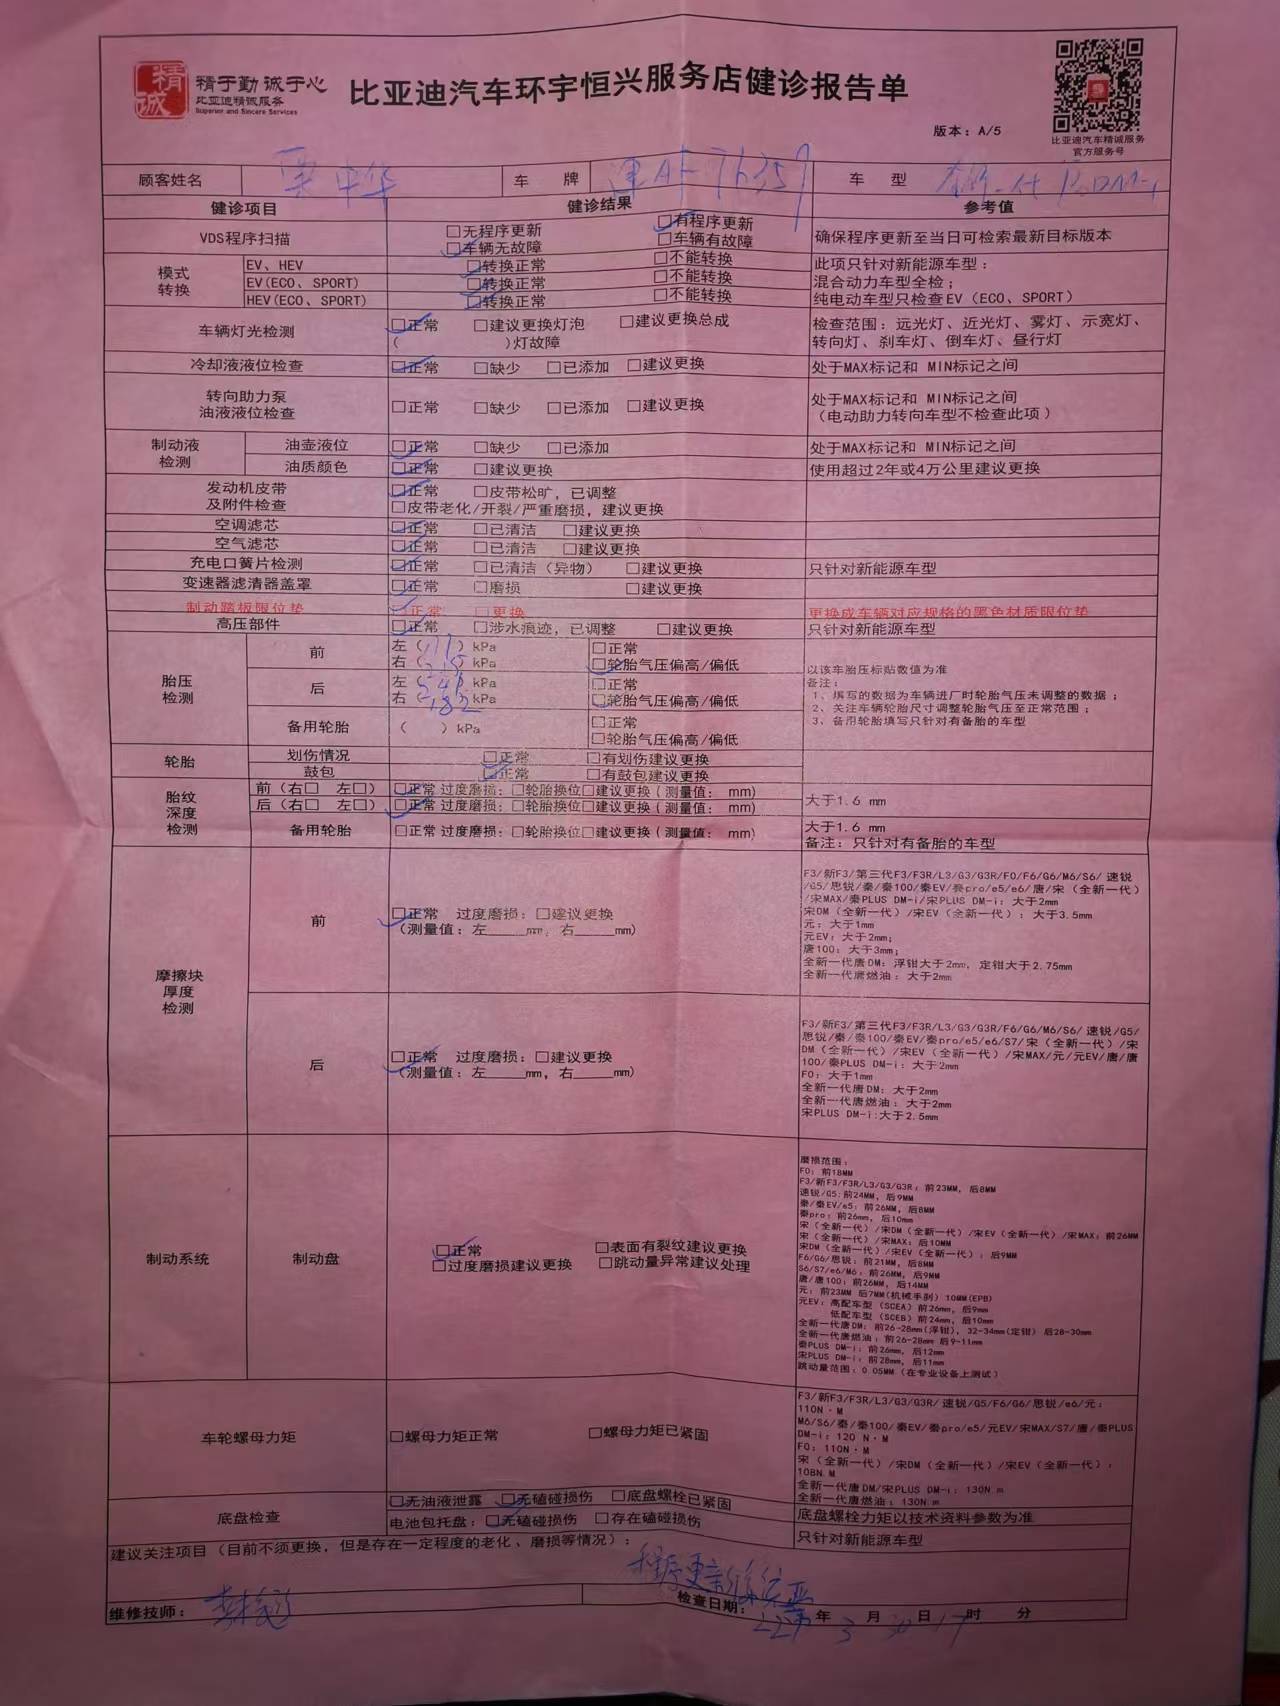 精于勤 诚于心
比亚迪精诚服务
Superior and Sincere Services
精诚
比亚迪汽车环宇恒兴服务店健诊报告单
版本：A/5
比亚迪汽车精诚服务
官方服务号
顾客姓名 中华 车 牌 车 型
健诊项目 健诊结果 参考值
VDS程序扫描 □无程序更新 □有程序更新 确保程序更新至当日可检索最新目标版本
□车辆无故障 □车辆有故障
模式转换 EV、HEV □转换正常 □不能转换 此项只针对新能源车型：
EV(ECO、SPORT) □转换正常 □不能转换 混合动力车型全检；
HEV(ECO、SPORT) □转换正常 □不能转换 纯电动车型只检查EV（ECO、SPORT）
车辆灯光检测 □正常 □建议更换灯泡 □建议更换总成 检查范围：远光灯、近光灯、雾灯、示宽灯、
（ )灯故障 转向灯、刹车灯、倒车灯、昼行灯
冷却液液位检查 □正常 □缺少 □已添加 □建议更换 处于MAX标记和 MIN标记之间
转向助力泵
油液液位检查 □正常 □缺少 □已添加 □建议更换 处于MAX标记和 MIN标记之间
（电动助力转向车型不检查此项）
制动液检测 油壶液位 □正常 □缺少 □已添加 处于MAX标记和 MIN标记之间
油质颜色 □正常 □建议更换 使用超过2年或4万公里建议更换
发动机皮带 □正常 □皮带松旷，已调整
及附件检查 □皮带老化/开裂/严重磨损，建议更换
空调滤芯 □正常 □已清洁 □建议更换
空气滤芯 □正常 □已清洁 □建议更换
充电口簧片检测 □正常 □已清洁（异物） □建议更换 只针对新能源车型
变速器滤清器盖罩 □正常 □磨损 □建议更换
制动踏板限位垫 □正常 □更换 更换成车辆对应规格的黑色材质限位垫
高压部件 □正常 □涉水痕迹，已调整 □建议更换 只针对新能源车型
胎压检测 前 左（ ）kPa □正常
右（ ）kPa □轮胎气压偏高/偏低 以该车胎压标贴数值为准
后 左（ ）kPa □正常 备注：
右（ 182 ）kPa □轮胎气压偏高/偏低 1、填写的数据为车辆进厂时轮胎气压未调整的数据；
2、关注车辆轮胎尺寸调整轮胎气压至正常范围；
备用轮胎 （ ）kPa □正常 3、备用轮胎填写只针对有备胎的车型
□轮胎气压偏高/偏低
轮胎 划伤情况 □正常 □有划伤建议更换
鼓包 □正常 □有鼓包建议更换
胎纹深度检测 前（右□ 左□） □正常 过度磨损：□轮胎换位□建议更换（测量值： mm） 大于1.6 mm
后（右□ 左□） □正常 过度磨损：□轮胎换位□建议更换（测量值： mm）
备用轮胎 □正常 过度磨损：□轮胎换位□建议更换（测量值： mm） 大于1.6 mm
备注：只针对有备胎的车型
摩擦块厚度检测 前 □正常 过度磨损：□建议更换
（测量值：左____mm，右____mm）
F3/新F3/第三代F3/F3R/L3/G3/G3R/F0/F6/G6/M6/S6/ 速锐
/G5/思锐/秦/秦100/秦EV/秦pro/e5/e6/唐/宋（全新一代）
/宋MAX/秦PLUS DM-i/宋PLUS DM-i：大于2mm
宋DM（全新一代）/宋EV（全新一代）：大于3.5mm
元：大于1mm
元EV：大于2mm；
唐100：大于3mm；
全新一代唐DM：浮钳大于2mm，定钳大于2.75mm
全新一代唐燃油：大于2mm
后 □正常 过度磨损：□建议更换
（测量值：左____mm，右____mm）
F3/新F3/第三代F3/F3R/L3/G3/G3R/F6/G6/M6/S6/ 速锐/G5/
思锐/秦/秦100/秦EV/秦pro/e5/e6/S7/宋（全新一代）/宋
DM（全新一代）/宋EV（全新一代）/宋MAX/元/元EV/唐/唐
100/秦PLUS DM-i：大于2mm
F0：大于1mm
全新一代唐DM：大于2mm
全新一代唐燃油：大于2mm
宋PLUS DM-i:大于2.5mm
制动系统 制动盘 □正常 □表面有裂纹建议更换
□过度磨损建议更换 □跳动量异常建议处理
磨损范围：
F0：前18MM
F3/新F3/F3R/L3/G3/G3R：前23MM，后8MM
速锐/G5:前24MM，后9MM
秦/秦EV/e5：前26MM，后8MM
秦pro：前26mm，后10mm
宋（全新一代）/宋DM（全新一代）/宋EV（全新一代）/宋MAX：前26MM
宋（全新一代）/宋MAX：后10MM
宋DM（全新一代）/宋EV（全新一代）：后9MM
F6/G6/思锐：前21MM，后8MM
S6/S7/e6/M6：前26MM，后9MM
唐/唐100：前26MM，后14MM
元：前23MM 后7MM(机械手刹) 10MM(EPB)
元EV：高配车型（SCEA）前26mm，后9mm
低配车型（SCEB）前24mm，后10mm
全新一代唐DM：前26-28mm(浮钳)，32-34mm(定钳) 后28-30mm
全新一代唐燃油：前26-28mm 后9-11mm
秦PLUS DM-i：前26mm，后12mm
宋PLUS DM-i：前28mm，后11mm
跳动量范围：0.05MM（在专业设备上测试）
车轮螺母力矩 □螺母力矩正常 □螺母力矩已紧固
F3/新F3/F3R/L3/G3/G3R/ 速锐/G5/F6/G6/思锐/e6/元：
110N·M
M6/S6/秦/秦100/秦EV/秦pro/e5/元EV/宋MAX/S7/唐/秦PLUS
DM-i：120 N·M
F0：110N·M
宋（全新一代）/宋DM（全新一代）/宋EV（全新一代）：
108N.M
全新一代唐DM/宋PLUS DM-i：130N m
全新一代唐燃油：130N m
底盘检查 □无油液泄露 □无磕碰损伤 □底盘螺栓已紧固 底盘螺栓力矩以技术资料参数为准
电池包托盘：□无磕碰损伤 □存在磕碰损伤 只针对新能源车型
建议关注项目（目前不须更换，但是存在一定程度的老化、磨损等情况）：
程序更新
维修技师： 检查日期： 年 3 月 30 日 17 时 分